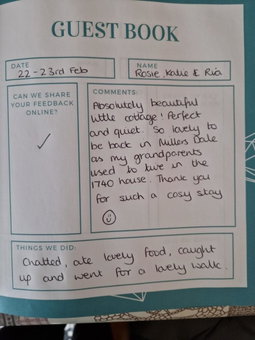 GUEST BOOK
DATE
22-23rd Feb
NAME
Rosie, Katie & Ria
CAN WE SHARE
YOUR FEEDBACK
ONLINE?
✓
COMMENTS:
Absolutely beautiful
little cottage! Perfect
and quiet. So lovely to
be back in Millers Dale
as my grandparents
used to live in the
1740 house. Thank you
for such a cosy stay
☺
THINGS WE DID:
Chatted, ate lovely food, caught
up and went for a lovely walk.